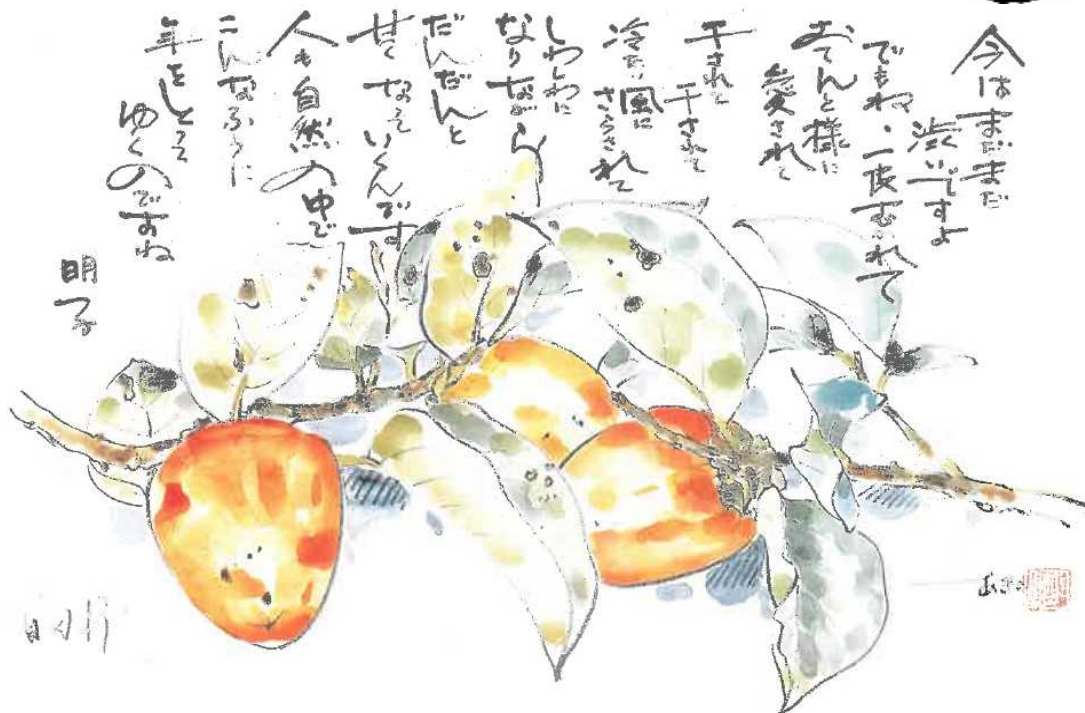 今はまだまだ
渋いですよ
でもね、一度むかれて
おてんと様に
愛されて
干されて
干されて
冷たい風に
さらされて
しわしわに
なりながら
だんだんと
甘くなっていくんです
人も自然の中で
こんなふうに
年をとって
ゆくのですね
明子